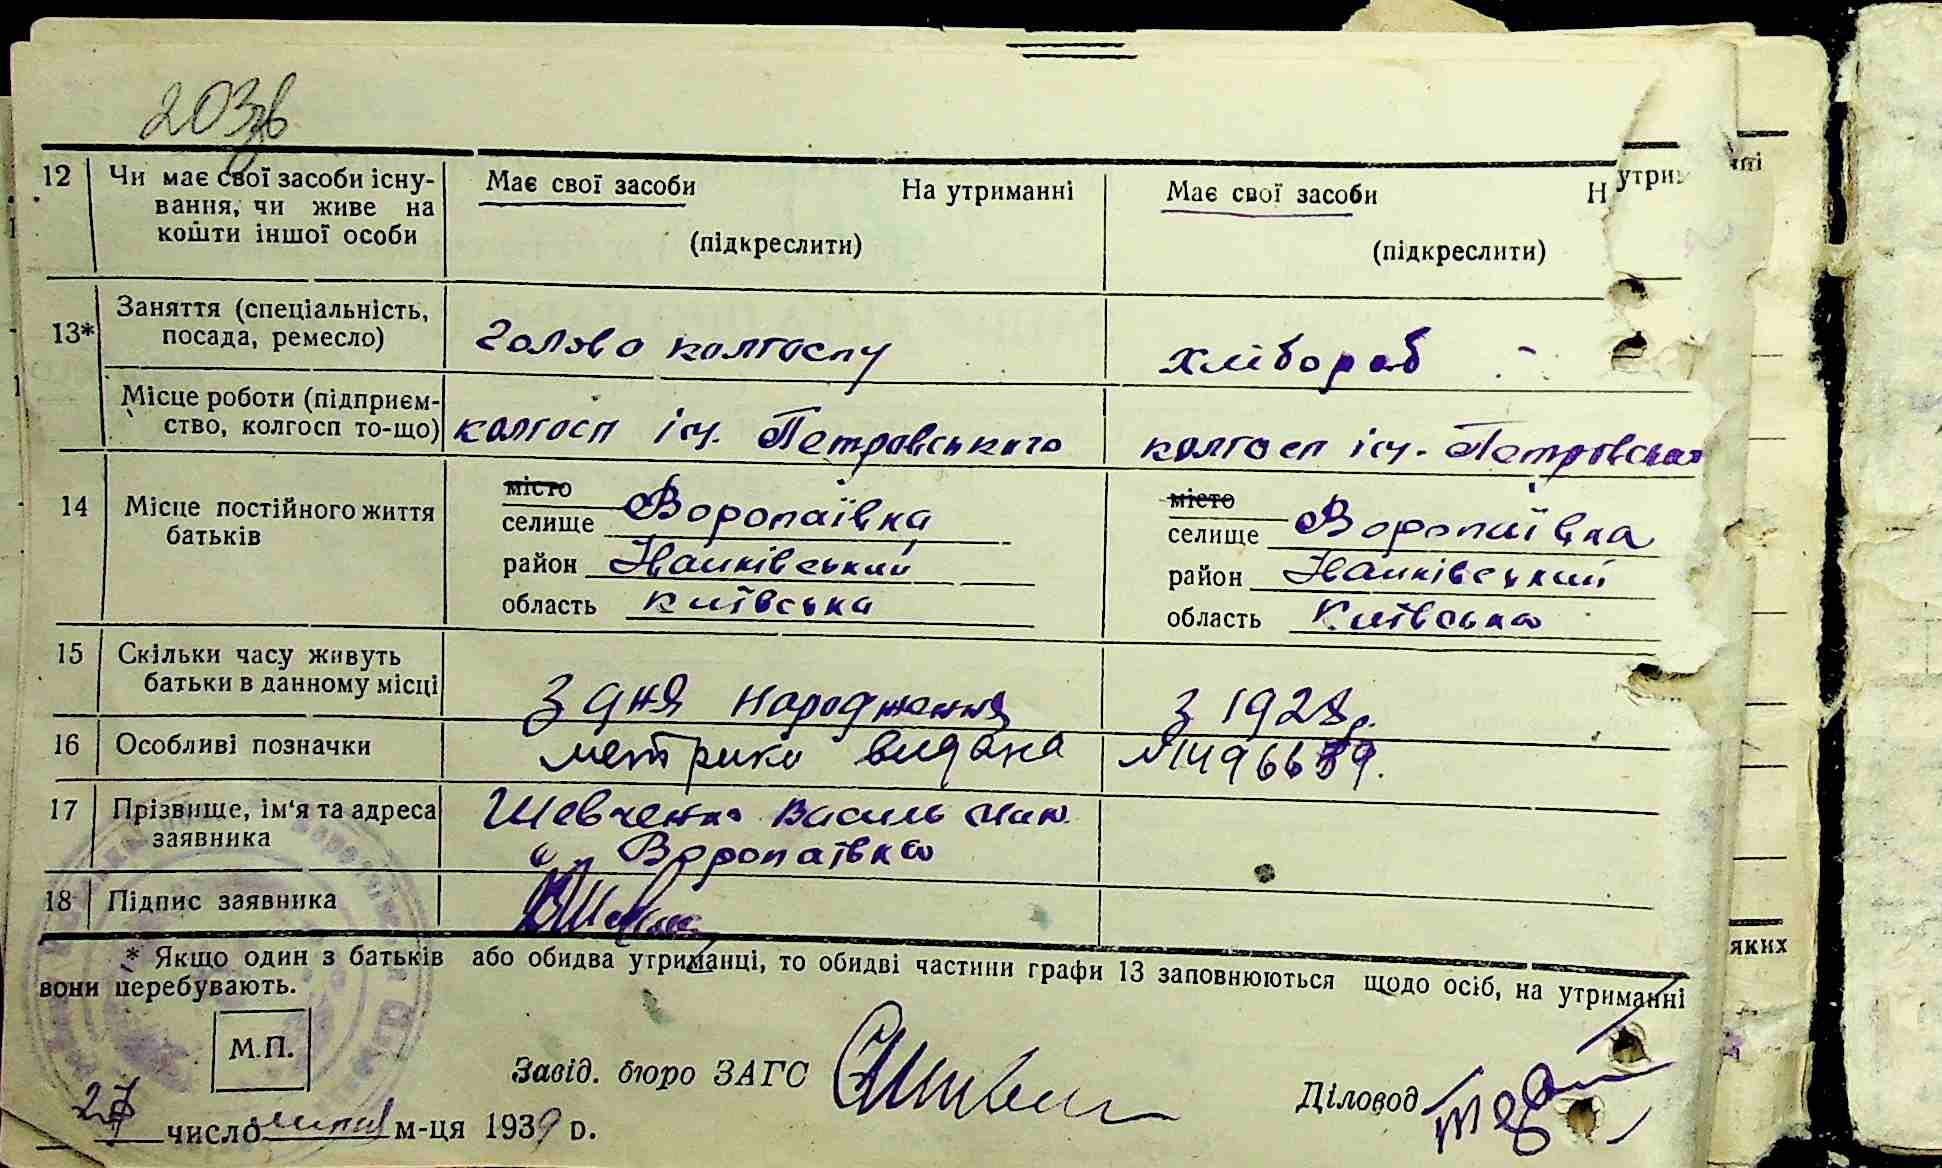 203зв
12 Чи має свої засоби існу- Має свої засоби На утриманні Має свої засоби Н утрим
вання, чи живе на
кошти іншої особи (підкреслити) (підкреслити)
13* Заняття (спеціальність,
посада, ремесло) голова колгоспу хлібороб -
Місце роботи (підприєм-
ство, колгосп то-що) колгосп ім. Петровського колгосп ім. Петровська
14 Місце постійного життя місто місто
батьків селище Воропаївка селище Воропаївка
район Іванківський район Іванківський
область Київська область Київська
15 Скільки часу живуть
батьки в данному місці З дня народження з 1928 р.
16 Особливі позначки метрика видана №1496659.
17 Прізвище, ім'я та адреса Шевченко Василь Мик.
заявника с. Воропаївка
18 Підпис заявника
яких
* Якщо один з батьків або обидва утриманці, то обидві частини графи 13 заповнюються щодо осіб, на утриманні
вони перебувають.
М.П.
Завід. бюро ЗАГС Діловод
27 число липня м-ця 1939 р.